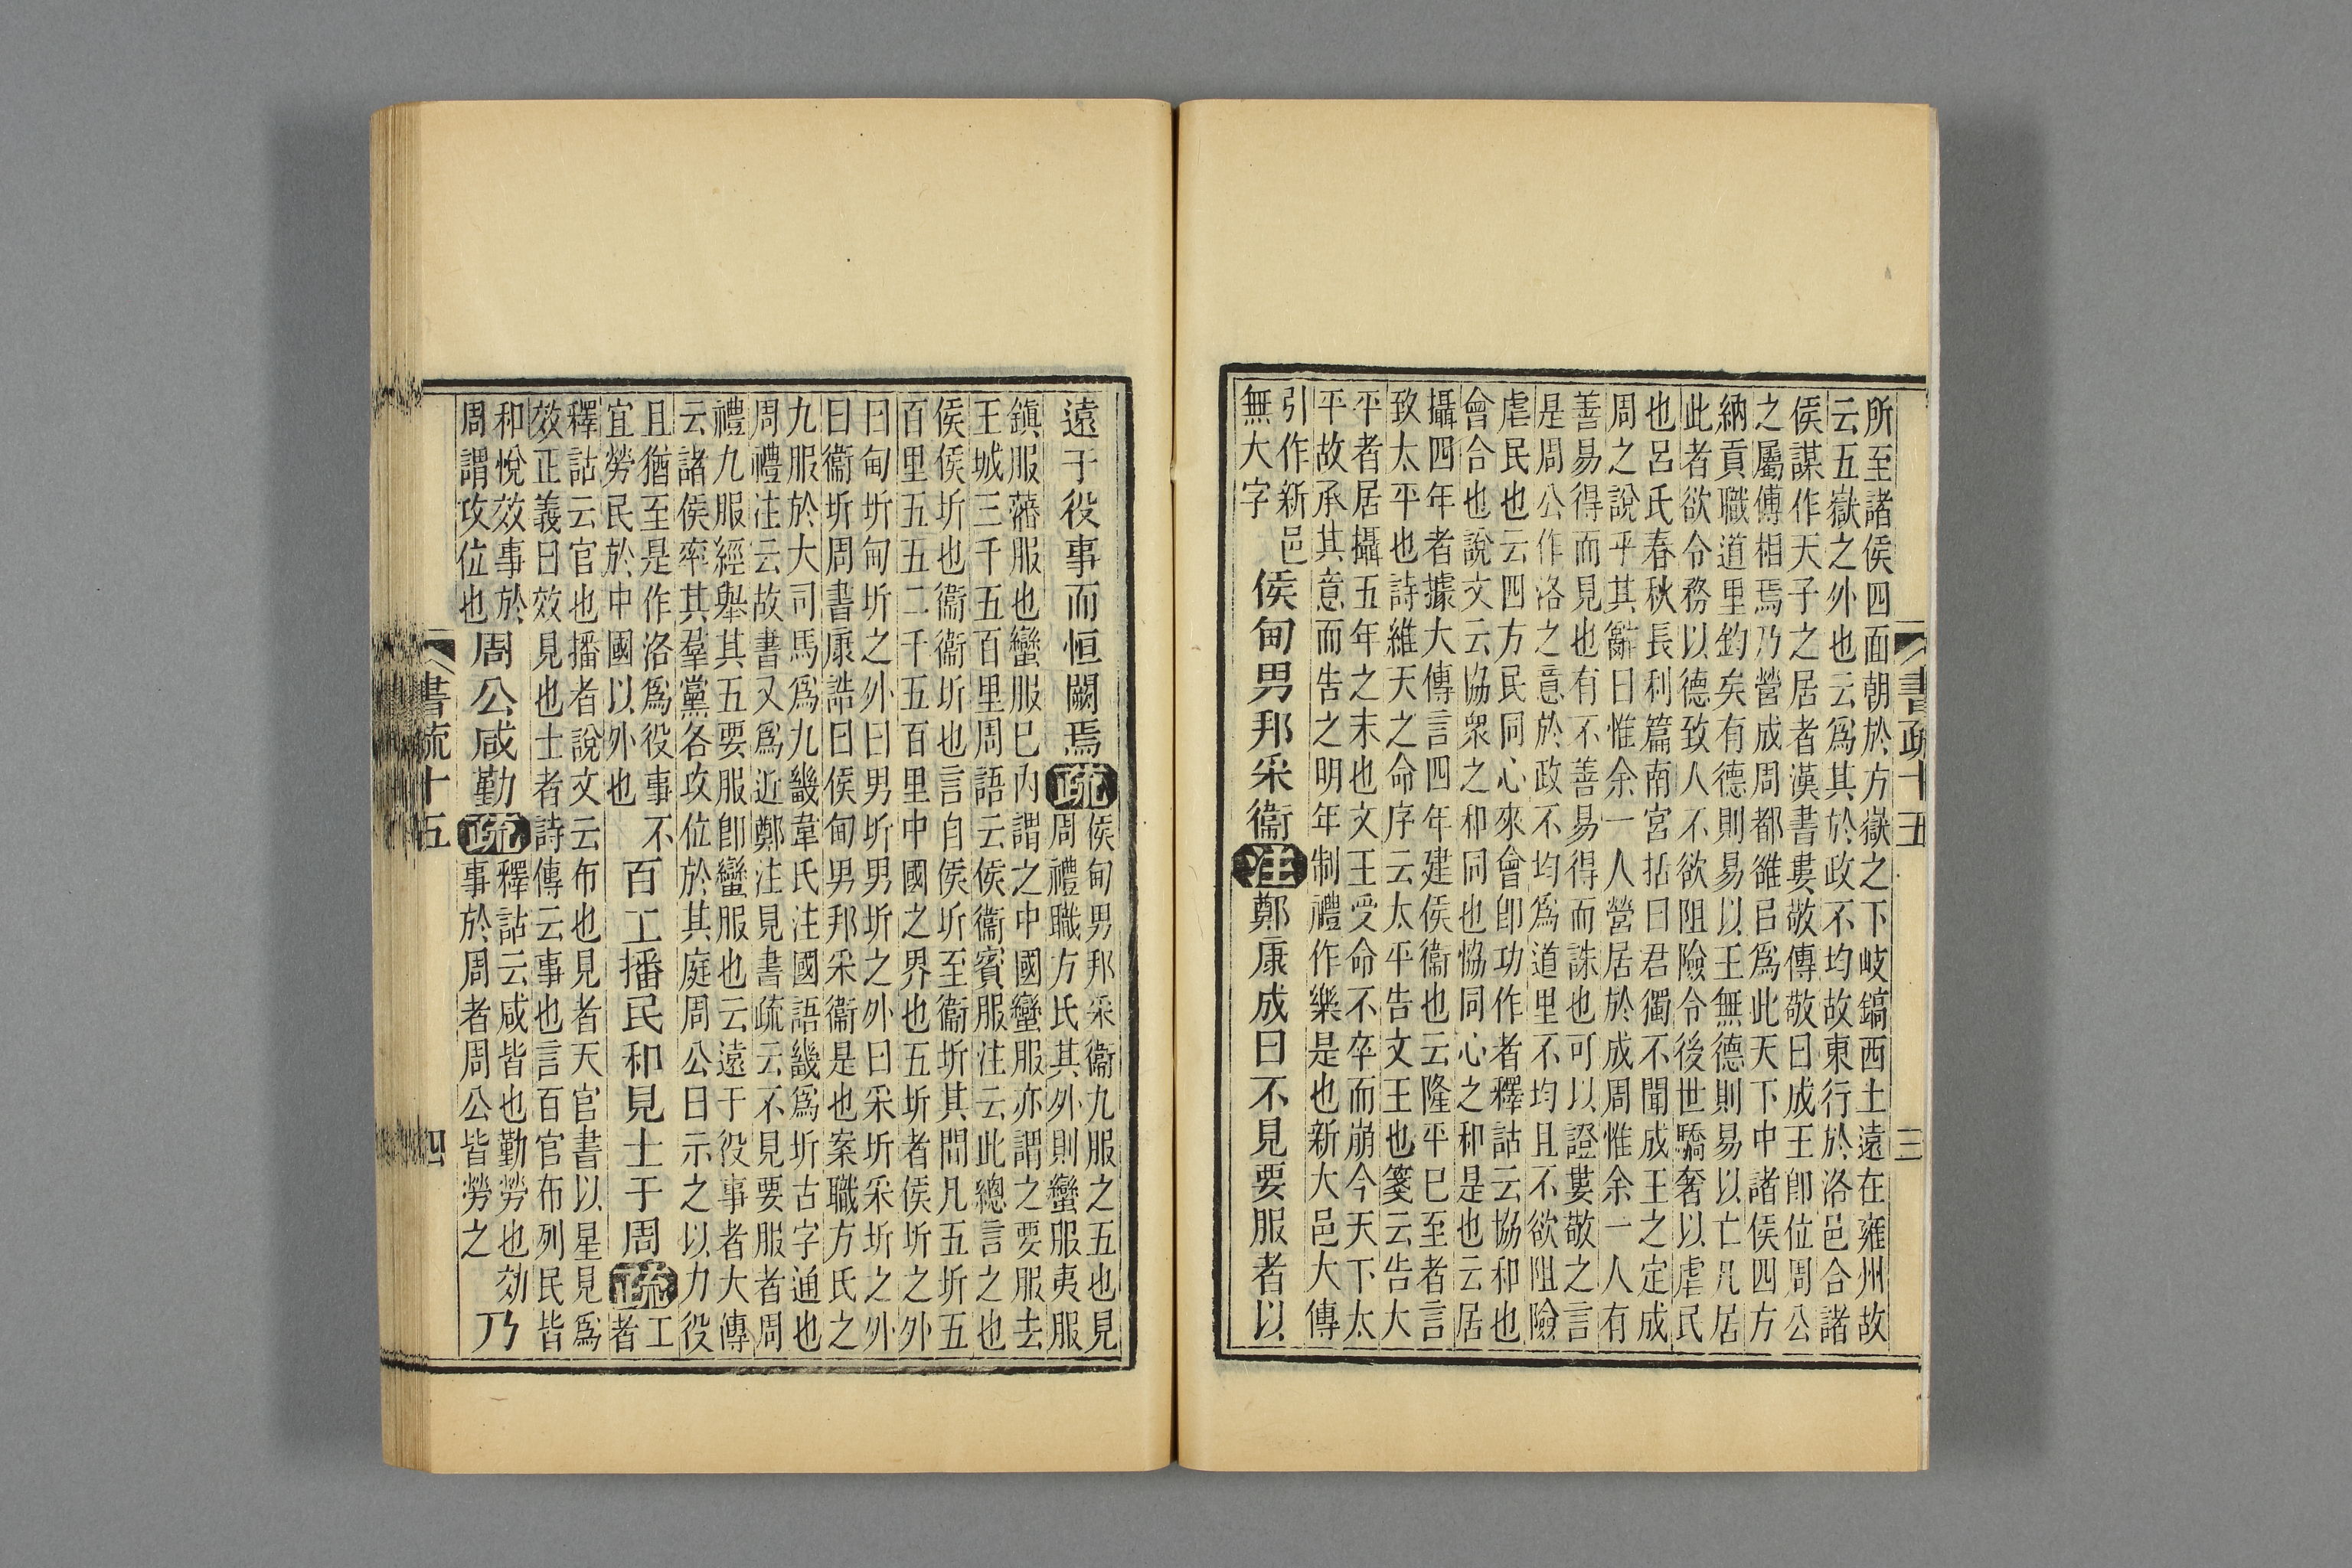 書疏十五
三
所至諸侯四面朝於方嶽之下岐鎬西土遠在雍州故
云五嶽之外也云爲其於政不均故東行於洛邑合諸
侯謀作天子之居者漢書婁敬傳敬曰成王卽位周公
之屬傅相焉乃營成周都雒㠯爲此天下中諸侯四方
納貢職道里鈞矣有德則易以王無德則易以亡凡居
此者欲令務以德致人不欲阻險令後世驕奢以虐民
也呂氏春秋長利篇南宮括曰君獨不聞成王之定成
周之說乎其辭曰惟余一人營居於成周惟余一人有
善易得而見也有不善易得而誅也可以證婁敬之言
是周公作洛之意於政不均爲道里不均且不欲阻險
虐民也云四方民同心來會卽功作者釋詁云協和也
會合也說文云協衆之和同也恊同心之和是也云居
攝四年者據大傳言四年建侯衞也云隆平巳至者言
致太平也詩維天之命序云太平告文王也箋云告大
平者居攝五年之末也文王受命不卒而崩今天下太
平故承其意而告之明年制禮作樂是也新大邑大傳
引作新邑
無大字
侯甸男邦采衞注鄭康成曰不見要服者以
遠于役事而恒闕焉疏
侯甸男邦采衞九服之五也見
周禮職方氏其外則蠻服夷服
鎮服藩服也蠻服巳內謂之中國蠻服亦謂之要服去
王城三千五百里周語云侯衞賓服注云此總言之也
侯侯圻也衞衞圻也言自侯圻至衞圻其閒凡五圻五
百里五五二千五百里中國之界也五圻者侯圻之外
曰甸圻甸圻之外曰男圻男圻之外曰采圻采圻之外
曰衞圻周書康誥曰侯甸男邦采衞是也案職方氏之
九服於大司馬爲九畿韋氏注國語畿爲圻古字通也
周禮注云故書又爲近鄭注見書疏云不見要服者周
禮九服經舉其五要服卽蠻服也云遠于役事者大傳
云諸侯率其羣黨各攻位於其庭周公曰示之以力役
且猶至是作洛爲役事不
宜勞民於中國以外也
百工播民和見士于周疏
工
者
釋詁云官也播者說文云布也見者天官書以星見爲
效正義曰效見也士者詩傳云事也言百官布列民皆
和悅效事於
周謂攻位也
周公咸勤疏
釋詁云咸皆也勤勞也効
事於周者周公皆勞之
乃
書疏十五
四